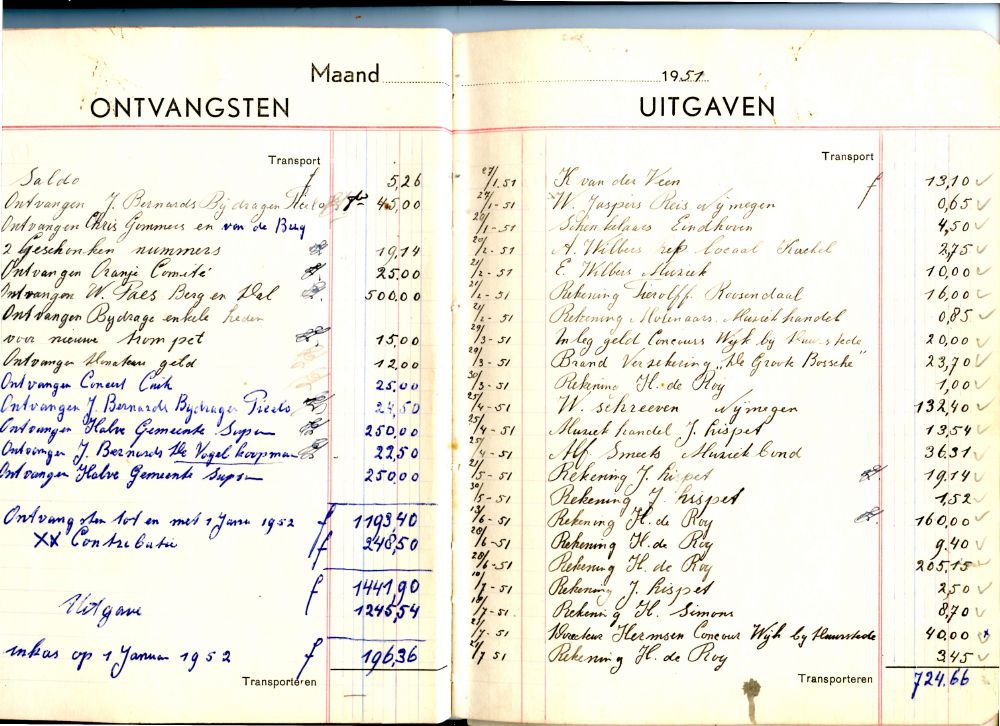 Maand
ONTVANGSTEN
Transport
Saldo f 5,26
Ontvangen J. Bernards Bydragen 45,00
Ontvangen Chris Gommers en van de Berg
2 Geschonken nummers 19,14
Ontvangen Oranje Comité 25,00
Ontvangen W. Paes Berg en Dal 500,00
Ontvangen Bydrage enkele heden
voor nieuwe trompet 15,00
Ontvangen Donateurs geld 12,00
Ontvangen Concert Cuik 25,00
Ontvangen J. Bernards Bydragen Peels 24,50
Ontvangen Halve Gemeente Supsn 250,00
Ontvangen J. Bernards De Vogel koopman 22,50
Ontvangen Halve Gemeente Supsn 250,00
Ontvangsten tot en met 1 Janu 1952 f 1193,40
XX Contributie f 248,50
f 1441,90
Uitgave 1245,54
inkas op 1 Januari 1952 f 196,36
Transporteren
1951
UITGAVEN
Transport
27/1.51 K van der Veen f 13,10
27/1-51 W. Jaspers Reis Nijmegen 0,65
29/1-51 Schenkelaars Eindhoven 4,50
20/2-51 A. Wilbers rep. locaal Kackel 2,75
21/2-51 E. Wilbers Muziek 10,00
21/2-51 Rekening Tierolff Roosendaal 16,00
21/2-51 Rekening Molenaars Muziekhandel 0,85
29/3-51 Inleg geld Concours Wijk by Duurstede 20,00
29/3-51 Brand Verzekering "De Groote Bossche" 23,70
30/3-51 Rekening H. de Roy 1,00
25/4-51 W. Schreeven Nijmegen 132,40
25/4-51 Muziekhandel J. Kispet 13,54
25/4-51 Alf Smeets Muziek Bond 36.31
21/5-51 Rekening J. Kispet 19,14
30/5-51 Rekening J. Kispet 1,52
13/6-51 Rekening H. de Roy 160,00
28/6-51 Rekening H. de Roy 9.40
28/6-51 Rekening H. de Roy 205,15
10/7-51 Rekening J. Kispet 2,50
18/7-51 Rekening H. Simons 8,70
21/7-51 Directeur Hermsen Concour Wijk by Duurstede 40,00
21/7 51 Rekening H. de Roy 3.45
Transporteren 724.66